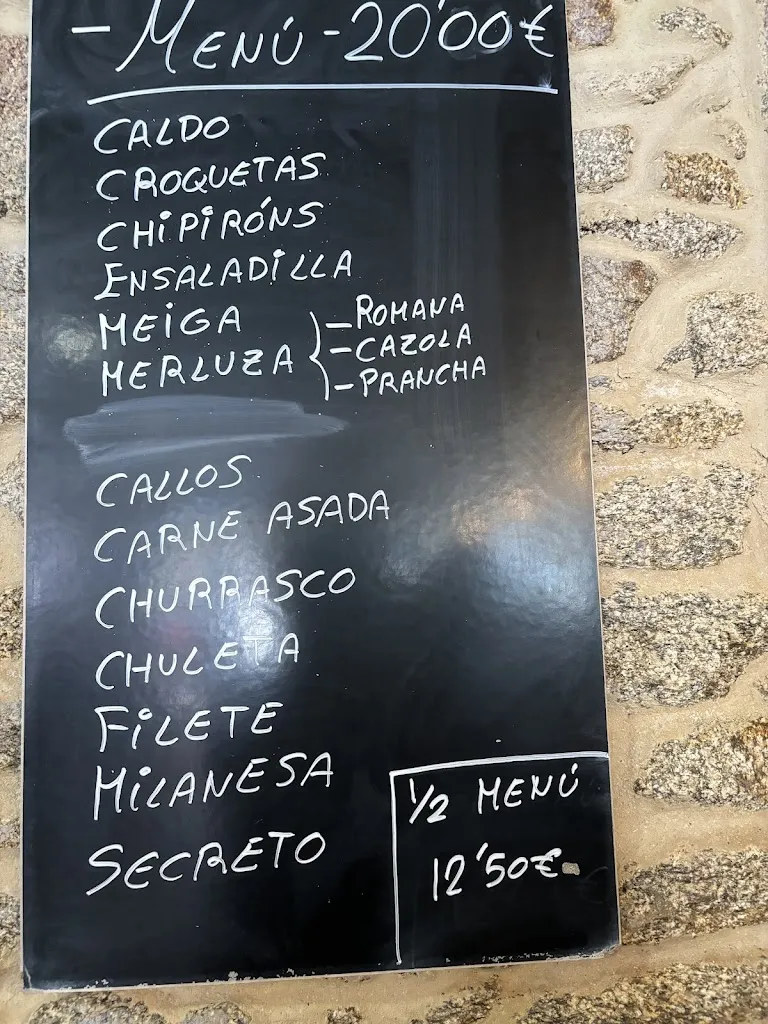 - MENÚ - 20'00€
CALDO
CROQUETAS
CHIPIRÓNS
ENSALADILLA
MEIGA
MERLUZA
- ROMANA
- CAZOLA
- PRANCHA
CALLOS
CARNE ASADA
CHURRASCO
CHULETA
FILETE
MILANESA
SECRETO
1/2 MENÚ
12'50€